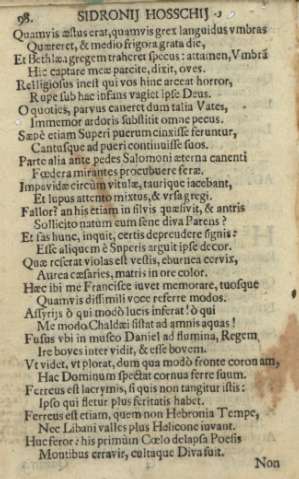 98. SIDRONIJ HOSSCHIJ
Quamvis æstus erat, quamvis grex languidus vmbras
Quæreret, & medio frigora grata die,
Et Bethlæa gregem traheret specus: attamen, Vmbrā
Hic captare meæ parcite, dixit, oves.
Relligiosus inest qui vos hinc arceat horror,
Rupe sub hac infans vagiet ipse Deus.
O quoties, parvus caneret dum talia Vates,
Immemor ardoris substitit omne pecus.
Sæpè etiam Superi puerum cinxisse feruntur,
Cantusque ad pueri continuisse suos.
Parte alia ante pedes Salomoni æterna canenti
Fœdera mirantes procubuere feræ.
Impavidæ circùm vitulæ, taurique iacebant,
Et lupus attento mixtus, & vrsa gregi.
Fallor? an his etiam in silvis quæsivit, & antris
Sollicito natum cum sene diva Parens?
Et fas hunc, inquit, certis deprendere signis:
Esse aliquem è Snperis arguit ipse decor.
Quæ referat violas est vestis, eburnea cervix,
Aurea cæsaries, matris in ore color.
Hæc ibi me Francisce iuvet memorare, tuosque
Quamvis dissimili voce referre modos.
Assyrijs ô qui modò lucis inferat! ô qui
Me modo Chaldæi sistat ad amnis aquas!
Fusus vbi in musco Daniel ad flumina, Regem
Ire boves inter vidit, & esse bovem.
Vt videt, vt plorat, dum qua modò fronte coronam,
Hac Dominum spectat cornua ferre suum.
Ferreus est lacrymis, si quis non tangitur istis:
Ipso qui fletur plus feritatis habet.
Ferreus est etiam, quem non Hebronia Tempe,
Nec Libani valles plus Helicone iuvant.
Huc feror: his primùm Cœlo delapsa Poësis
Montibus erravit, cultaque Diva fuit.
Non